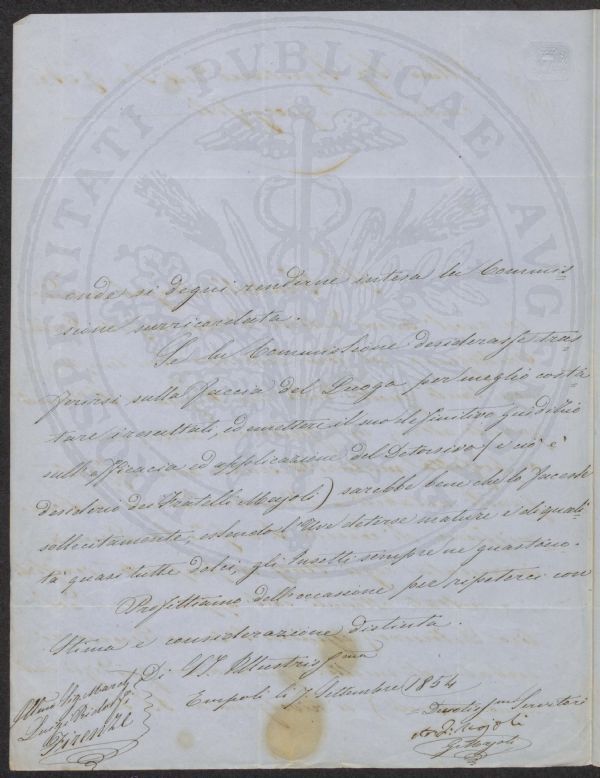 PROSPERITATI PUBLICAE AUGENDAE
onde si degni renderne intesa la Commis=
sione surricordata.
Se la Commissione desiderasse tras=
ferirsi sulla faccia del Luogo per meglio costa=
tare i resultati, ed emettere il suo definitivo giudizio
sull'efficacia ed applicazione del Detersivo (e ciò è
desiderio dei Fratelli Majoli) sarebbe bene che lo facesse
sollecitamente, essendo l'Uve deterse mature e di quali=
tà quasi tutte dolci, gli Insetti sempre ne guastano.
Profittiamo dell'occasione per ripeterci con
stima e considerazione distinta.
Di VS. Illustrissma
Empoli li 7 Settembre 1854
Devotissmi Servitori
Majoli
Majoli
Illmo Sig. March
Luigi Ridolfi
Firenze